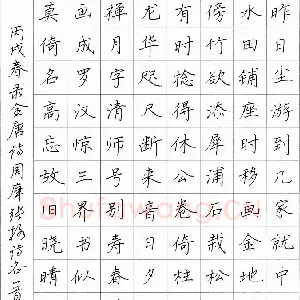 昨日尘游到几家就中
水田鋪座时移画金地
傍竹欲添犀浦石栽松
有时捻得休公卷倚柱
龙华咫尺断来音日夕
禅月字清师号别寿春
画成罗汉惊三界书似
真倚名高忘放旧晓晴
丙戌春录全唐诗周庠张格诗各一首